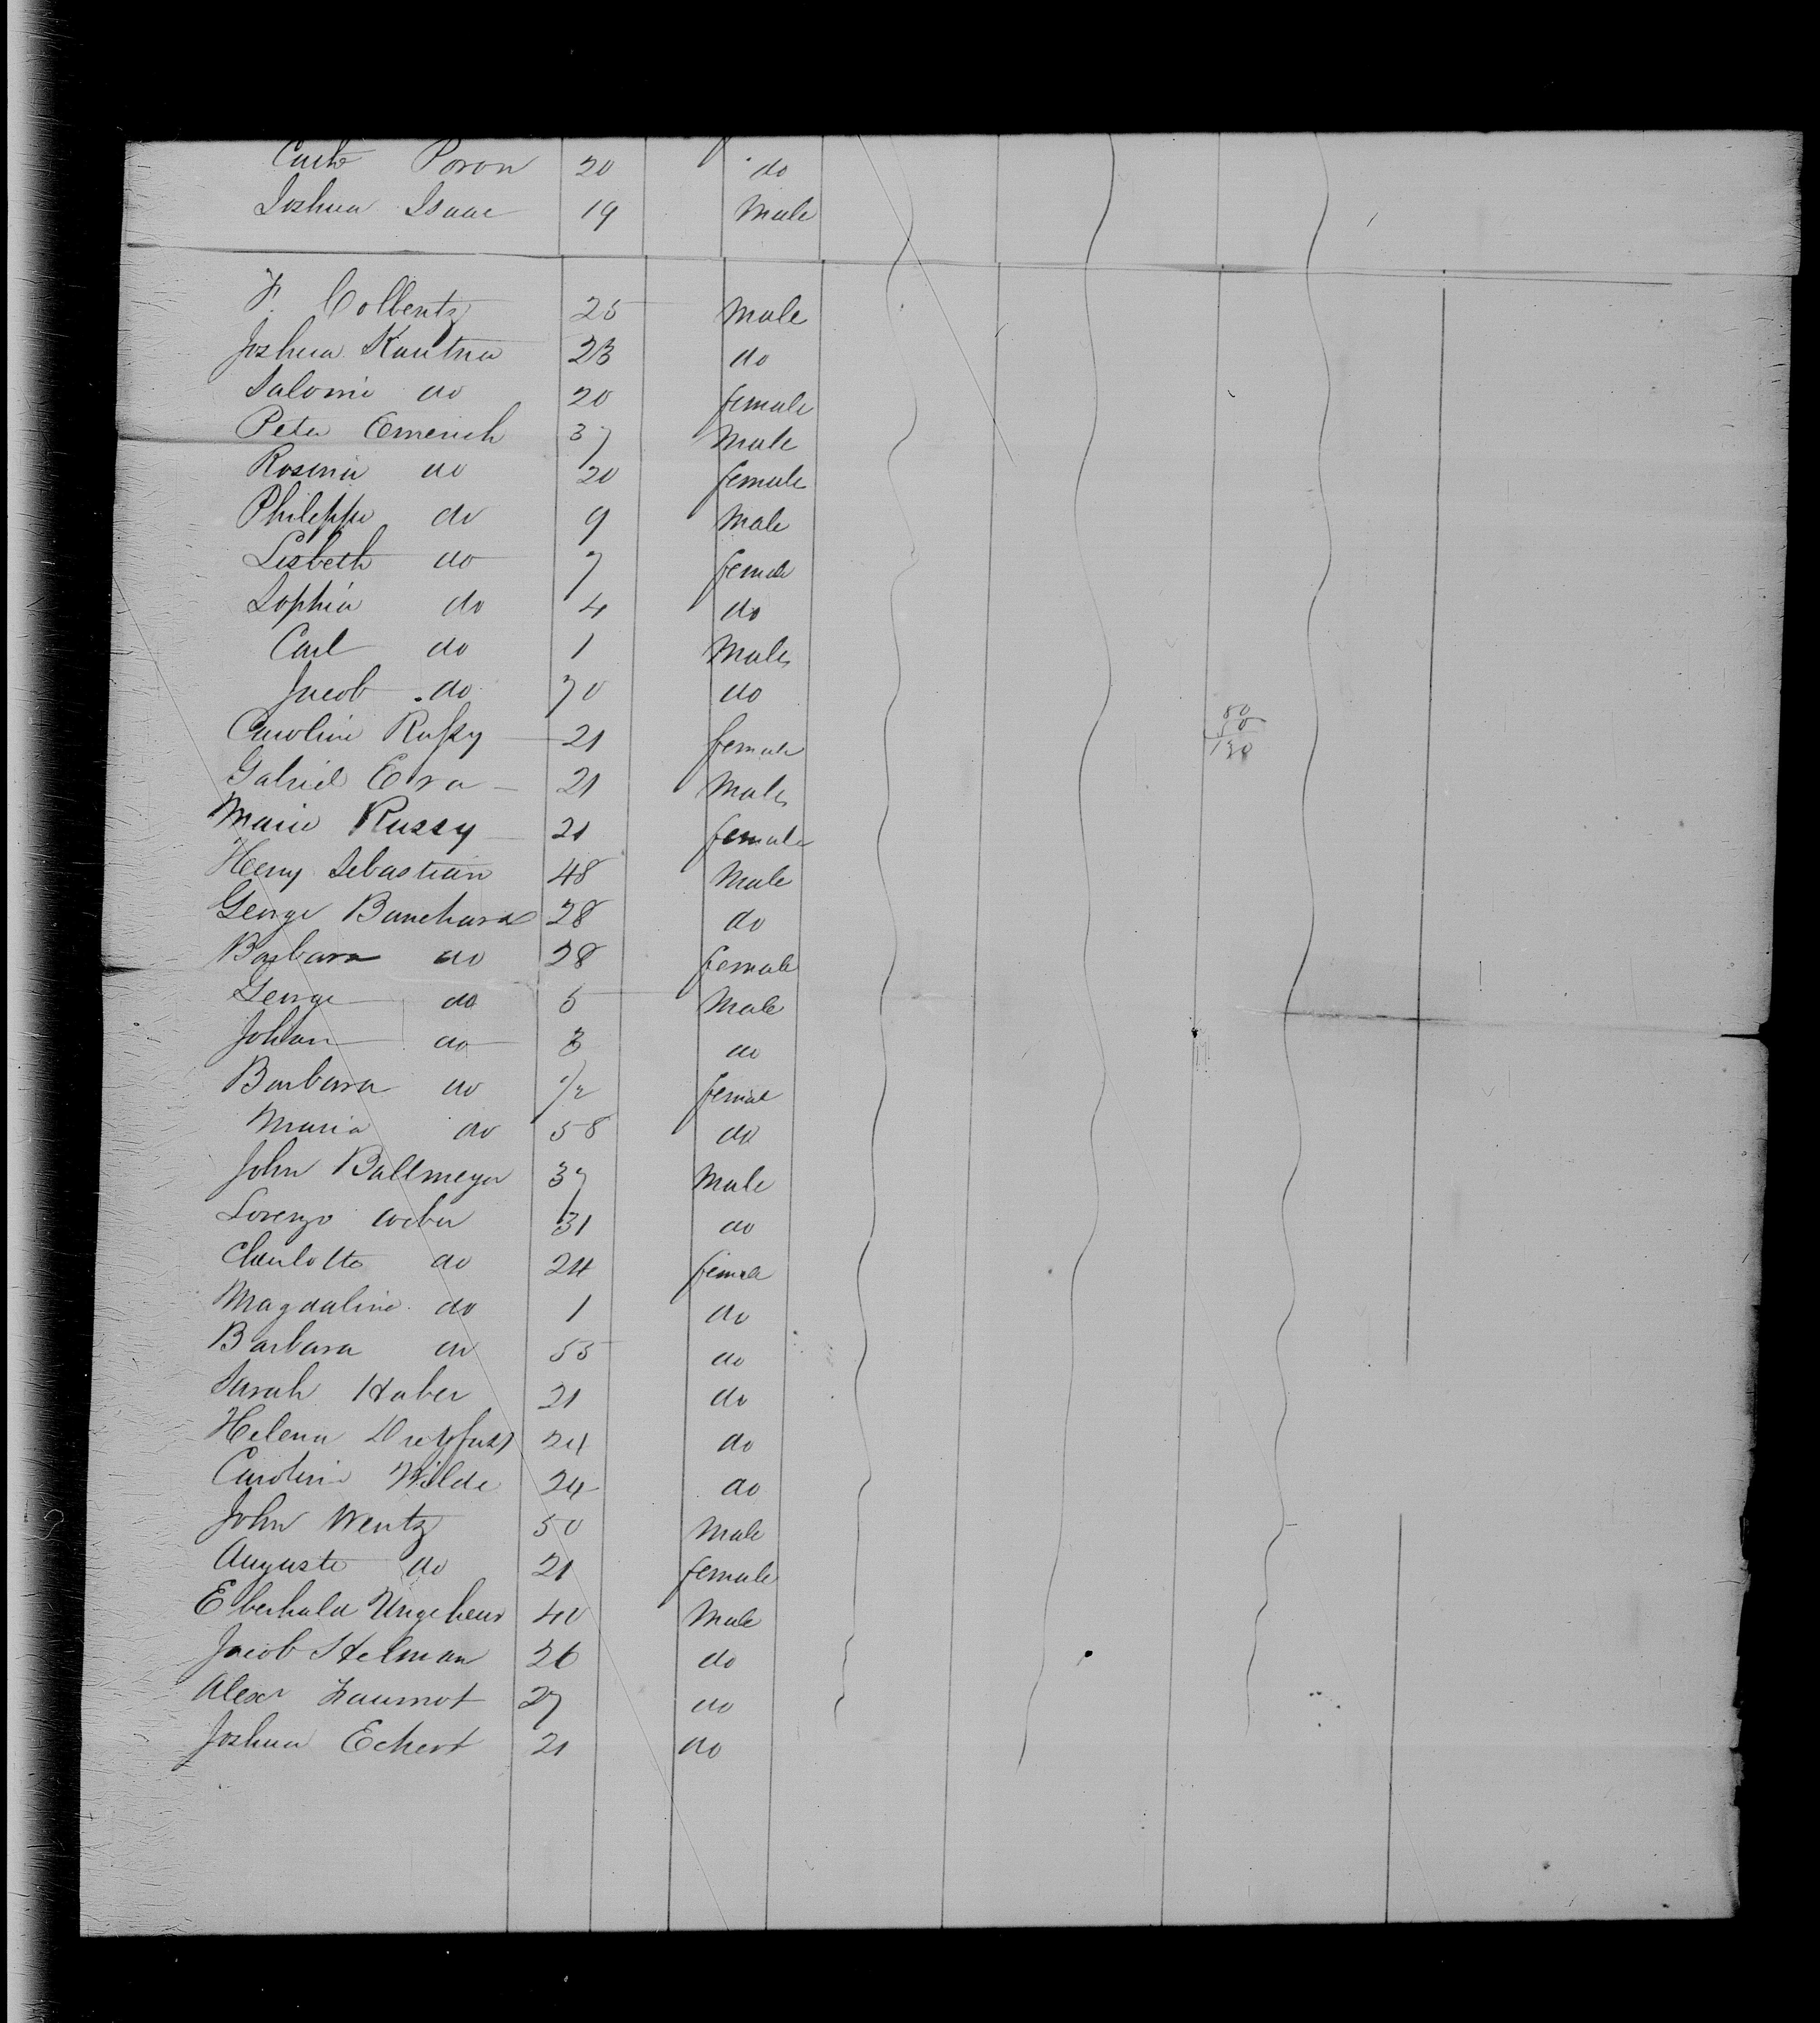 Poron 20 do
Joshua Isaac 19 Male
F. Collentz 25 Male
Joshua Kautna 23 do
Salomi do 20 female
Peter Emerich 37 Male
Rosina do 20 female
Philippe do 9 Male
Lisbeth do 7 female
Sophia do 4 do
Carl do 1 Male
Jacob do 70 do
Caroline Russy 21 female
80
50
130
Gabriel Era 21 Male
Marie Russy 21 female
Henry Sebastian 48 Male
George Banchard 28 do
Barbara do 28 female
George do 5 Male
Johan do 3 do
Barbara do 1/2 female
Maria do 58 do
John Ballmeyer 37 Male
Lorenzo Weber 31 do
Charlotte do 24 female
Magdaline do 1 do
Barbara do 55 do
Sarah Haber 21 do
Helena Dreyfuss 24 do
Caroline Wilde 24 do
John Wentz 50 Male
Auguste do 21 female
Eberhald Ungeheur 40 Male
Jacob Helman 26 do
Alexr 27 do
Joshua Echert 21 do